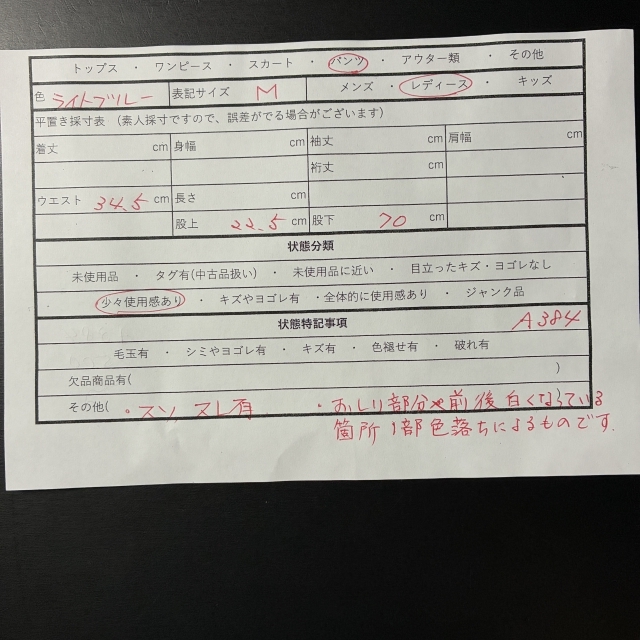 トップス ・ ワンピース ・ スカート ・ パンツ ・ アウター類 ・ その他
色 ライトブルー 表記サイズ M メンズ ・ レディース ・ キッズ
平置き採寸表 (素人採寸ですので、誤差がでる場合がございます)
着丈 cm 身幅 cm 袖丈 cm 肩幅 cm
裄丈 cm
ウエスト 34.5 cm 長さ cm
股上 22.5 cm 股下 70 cm
状態分類
未使用品 ・ タグ有(中古品扱い) ・ 未使用品に近い ・ 目立ったキズ・ヨゴレなし
少々使用感あり ・ キズやヨゴレ有 ・全体的に使用感あり ・ ジャンク品
状態特記事項 A384
毛玉有 ・ シミやヨゴレ有 ・ キズ有 ・ 色褪せ有 ・ 破れ有
欠品商品有( )
その他( ・スソ スレ有 ・おしり部分や前後白くなっている
箇所1部色落ちによるものです.